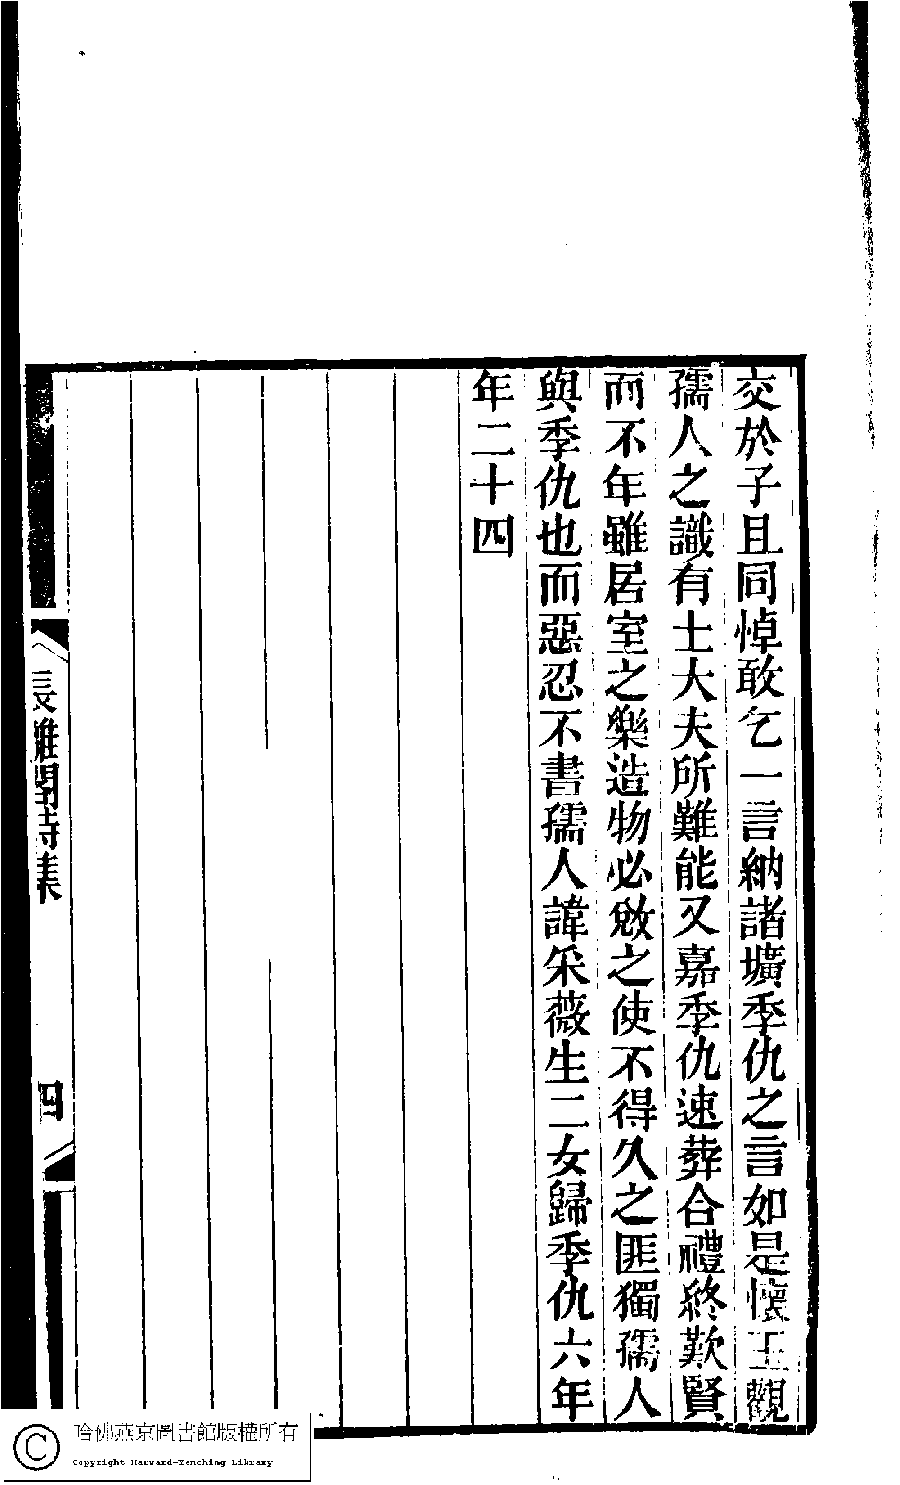 交於子且同悼敢乞一言納諸壙季仇之言如是懷玉觀
孺人之識有士大夫所難能又嘉季仇速葬合禮終歎賢
而不年雖居室之樂造物必敚之使不得久之匪獨孺人
與季仇也而惡忍不書孺人諱采薇生二女歸季仇六年
年二十四
長離閣詩集
四
哈佛燕京圖書館版權所有
Copyright Harvard-Yenching Library